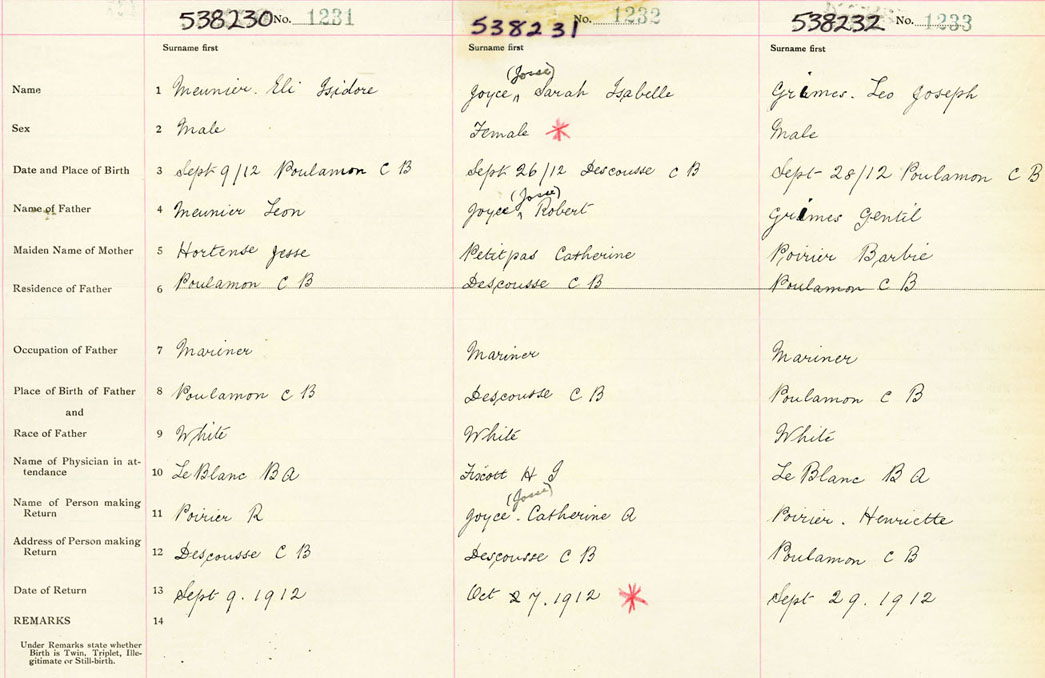 538230 No. 1231 538231 No. 1232 538232 No. 1233
Surname first Surname first Surname first
(Josse)
Name 1 Meunier. Eli Isidore Joyce ^ Sarah Isabelle Grimes. Leo Joseph
Sex 2 Male Female * Male
Date and Place of Birth 3 Sept 9/12 Poulamon C B Sept 26/12 Descousse C B Sept 28/12 Poulamon C B
(Josse)
Name of Father 4 Meunier Leon Joyce ^ Robert Grimes Gentil
Maiden Name of Mother 5 Hortense Jesse Petitpas Catherine Poirier Barbie
Residence of Father 6 Poulamon C B Descousse C B Poulamon C B
Occupation of Father 7 Mariner Mariner Mariner
Place of Birth of Father 8 Poulamon C B Descousse C B Poulamon C B
and
Race of Father 9 White White White
Name of Physician in at-
tendance 10 LeBlanc B A Fixott H J LeBlanc B A
(Josse)
Name of Person making
Return 11 Poirier R Joyce. Catherine A Poirier. Henriette
Address of Person making
Return 12 Descousse C B Descousse C B Poulamon C B
Date of Return 13 Sept 9. 1912 Oct 27. 1912 * Sept 29. 1912
REMARKS 14
Under Remarks state whether
Birth is Twin, Triplet, Ille-
gitimate or Still-birth.